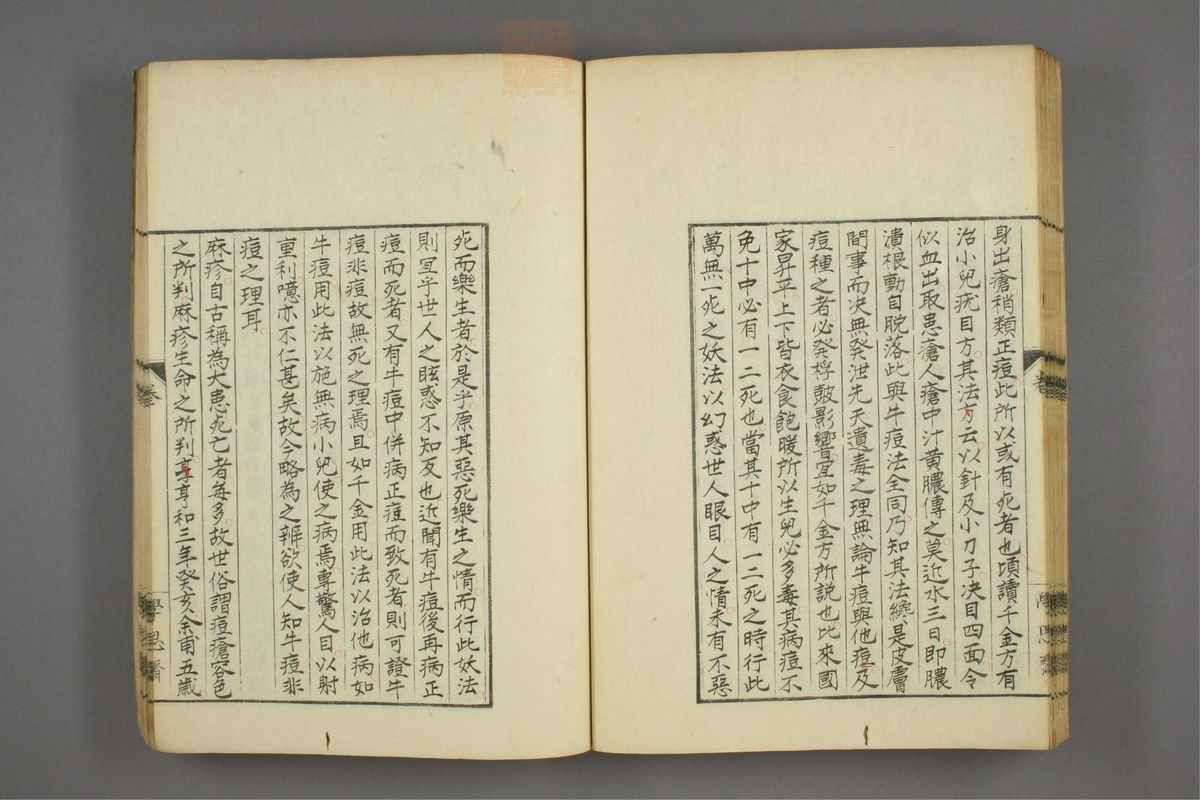 身出瘡稍類正痘此所以或有死者也頃讀千金方有
治小兒疣目方其法方云以針及小刀子决目四面令
似血出取患瘡人瘡中汁黃膿傳之莫近水三日即膿
潰根動自脫落此與牛痘法全同乃知其法纔是皮膚
間事而决無發泄先天遺毒之理無論牛痘與他痘及
痘種之者必發桴鼓影響宜如千金方所説也比來國
家昇平上下皆衣食飽暖所以生兒必多毒其病痘不
免十中必有一二死也當其十中有一二死之時行此
萬無一死之妖法以幻惑世人眼目人之情未有不惡
死而樂生者於是乎原其惡死樂生之情而行此妖法
則宜乎世人之眩惑不知反也近聞有牛痘後再病正
痘而死者又有牛痘中併病正痘而致死者則可證牛
痘非痘故無死之理焉且如千金用此法以治他病如
牛痘用此法以施無病小兒使之病焉專驚人目以射
重利噫亦不仁甚矣故今略為之辨欲使人知牛痘非
痘之理耳
麻疹自古稱為大患死亡者每多故世俗謂痘瘡容色
之所判麻疹生命之所判享亨和三年癸亥余甫五歲
卷
學思齋